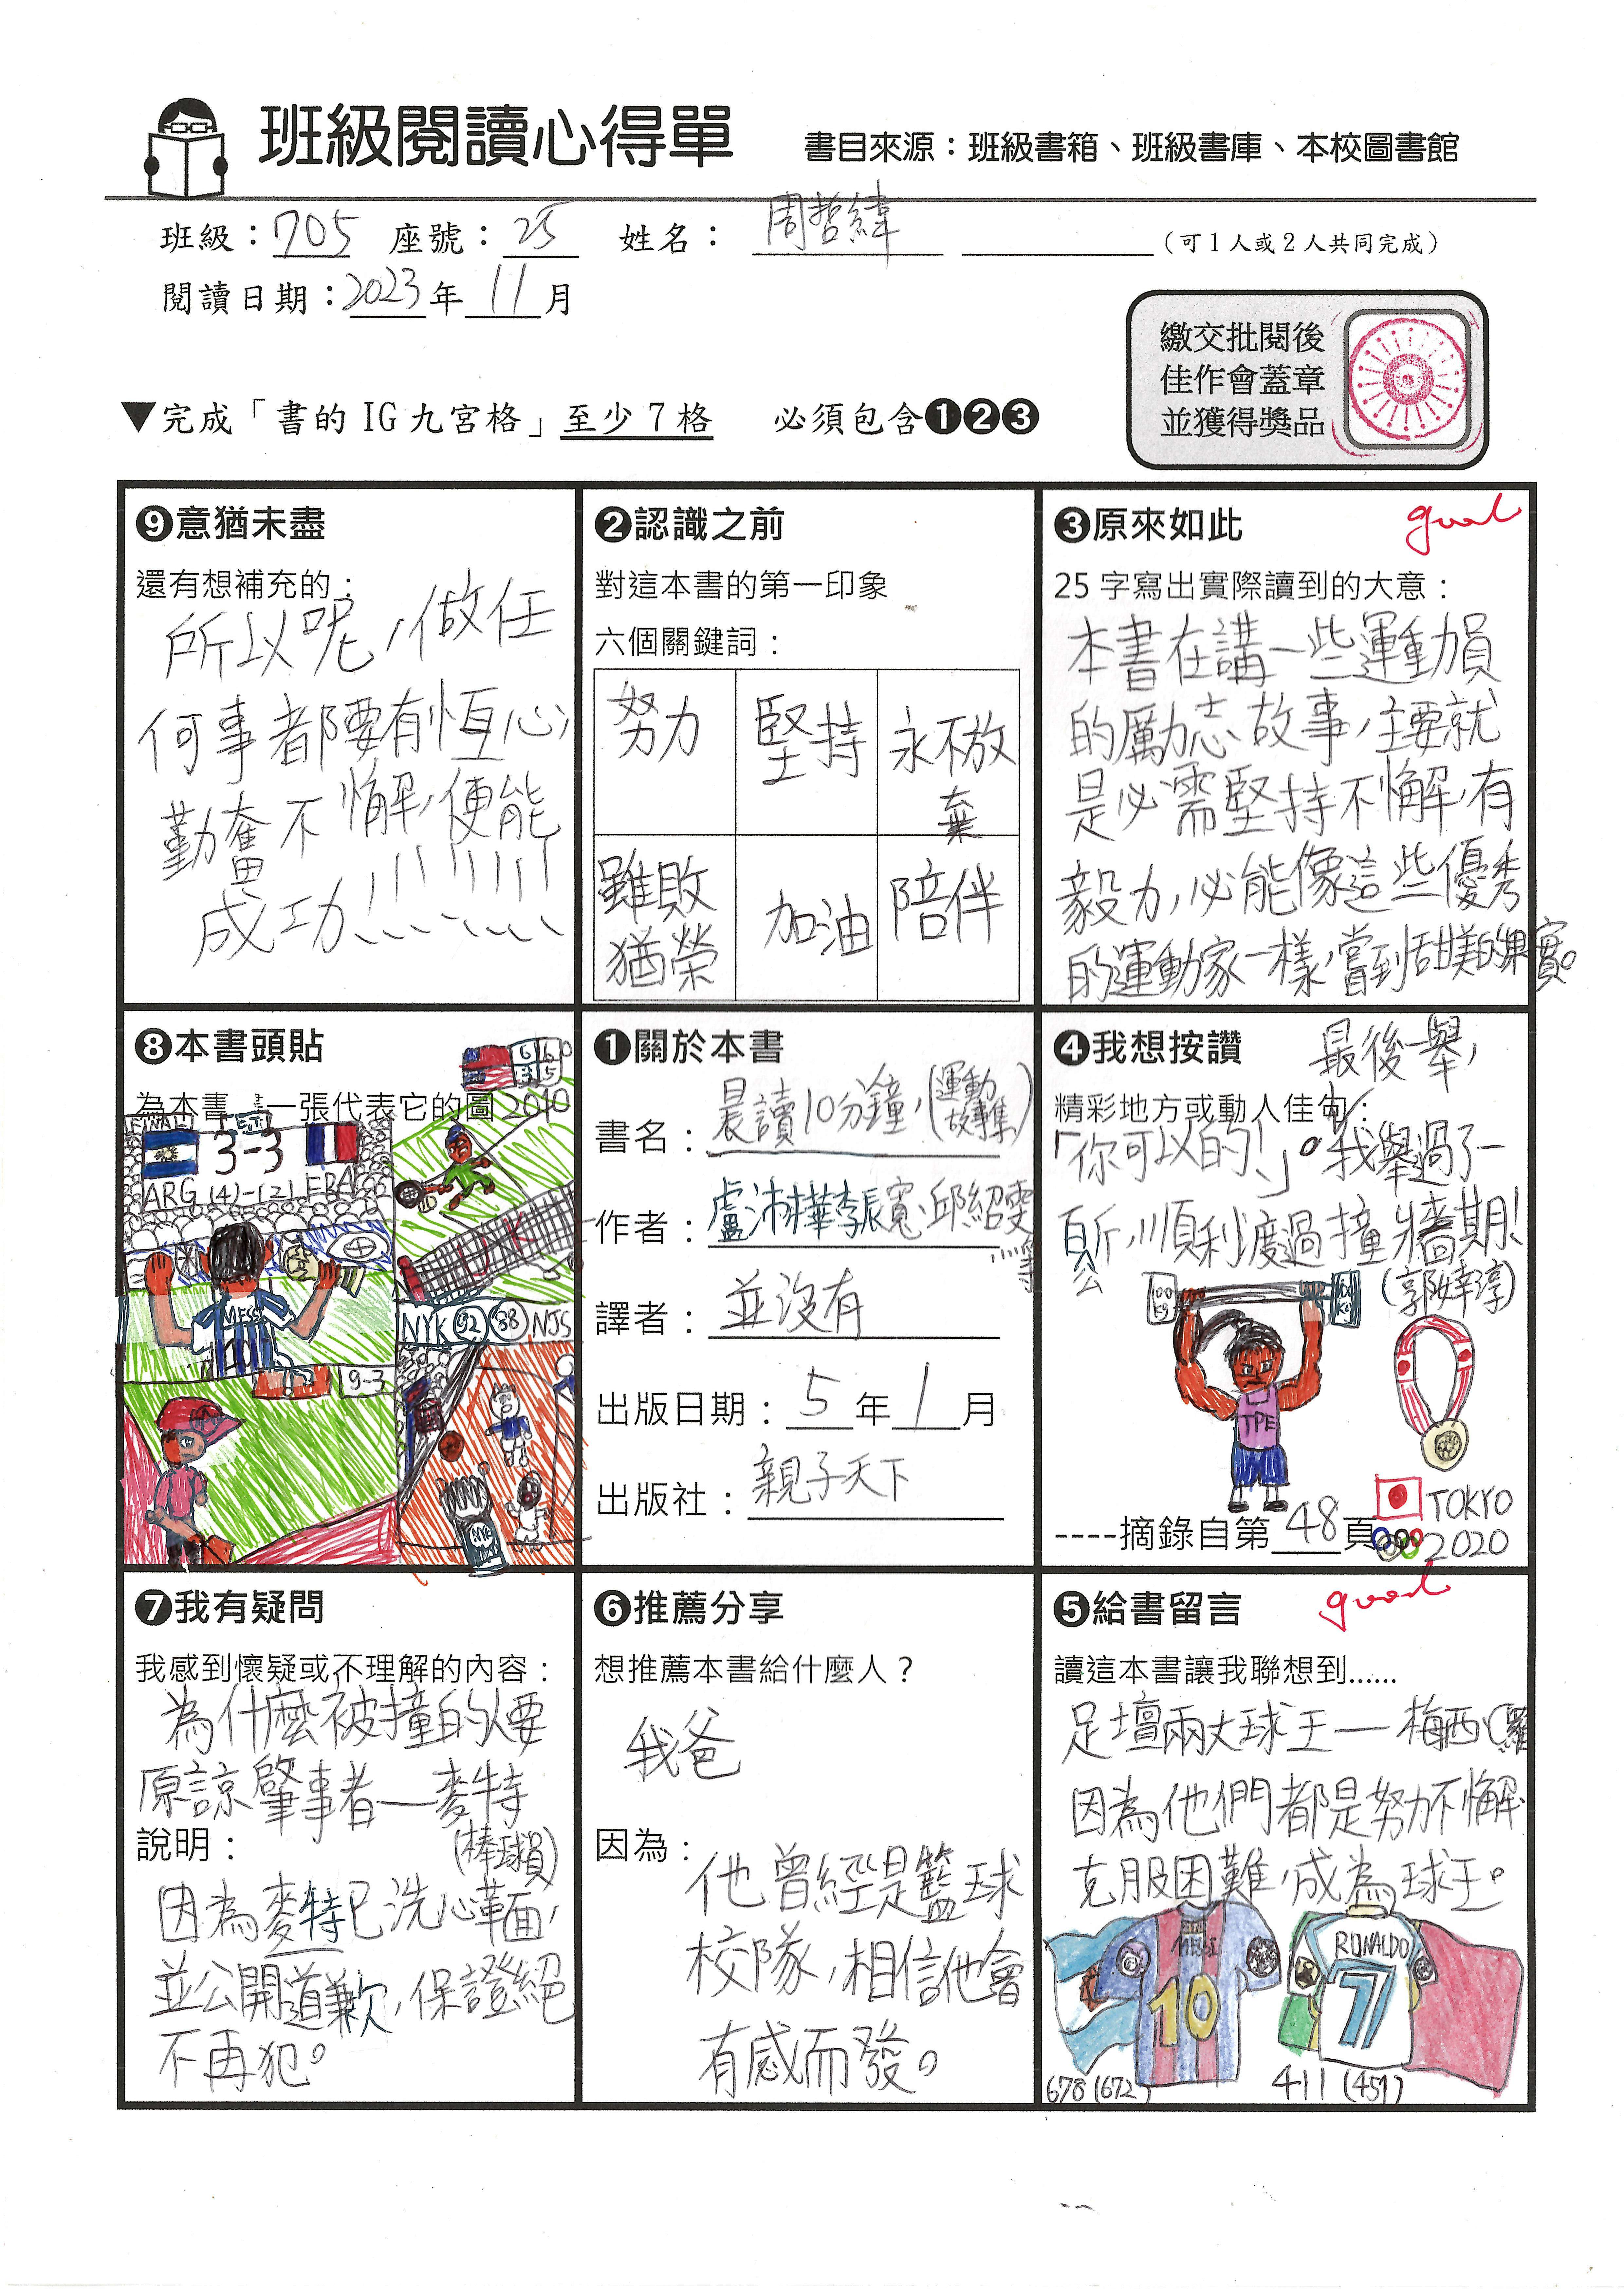 班級閱讀心得單
書目來源：班級書箱、班級書庫、本校圖書館
班級：705 座號：25 姓名：周哲緯 （可1人或2人共同完成）
閱讀日期：2023年11月
繳交批閱後
佳作會蓋章
並獲得獎品
▼完成「書的IG九宮格」至少7格 必須包含❶❷❸
❾意猶未盡
還有想補充的：
所以呢，做任
何事都要有恆心，
勤奮不懈，便能
成功!!!!!!!!!
❷認識之前
對這本書的第一印象
六個關鍵詞：
努力 堅持 永不放棄
雖敗猶榮 加油 陪伴
❸原來如此
good
25字寫出實際讀到的大意：
本書在講一些運動員
的勵志故事，主要就
是必需堅持不懈，有
毅力，必能像這些優秀
的運動家一樣，嘗到甜美的果實。
❽本書頭貼
為本書 一張代表它的圖
2010
FINAL
3-3
ARG (4)-(2) FRA
MESSI
10
NYK 92 88 NJS
9-3
❶關於本書
書名：晨讀10分鐘，(運動故事集)
作者：盧沛樺、李振寬、邱紹雯等
譯者：並沒有
出版日期：5年1月
出版社：親子天下
❹我想按讚
精彩地方或動人佳句：
最後一舉，
「你可以的！」。我舉過了一
百公斤，順利度過撞牆期！
(郭婞淳)
100KG
TPE
----摘錄自第48頁
TOKYO
2020
❼我有疑問
我感到懷疑或不理解的內容：
為什麼被撞的人要
原諒肇事者—麥特
(棒球員)
說明：
因為麥特已洗心革面，
並公開道歉，保證絕
不再犯。
❻推薦分享
想推薦本書給什麼人？
我爸
因為：
他曾經是籃球
校隊，相信他會
有感而發。
❺給書留言
good
讀這本書讓我聯想到……
足壇兩大球王—梅西、C羅
因為他們都是努力不懈
克服困難，成為球王。
MESSI
10
RONALDO
7
678 (672)
411 (451)